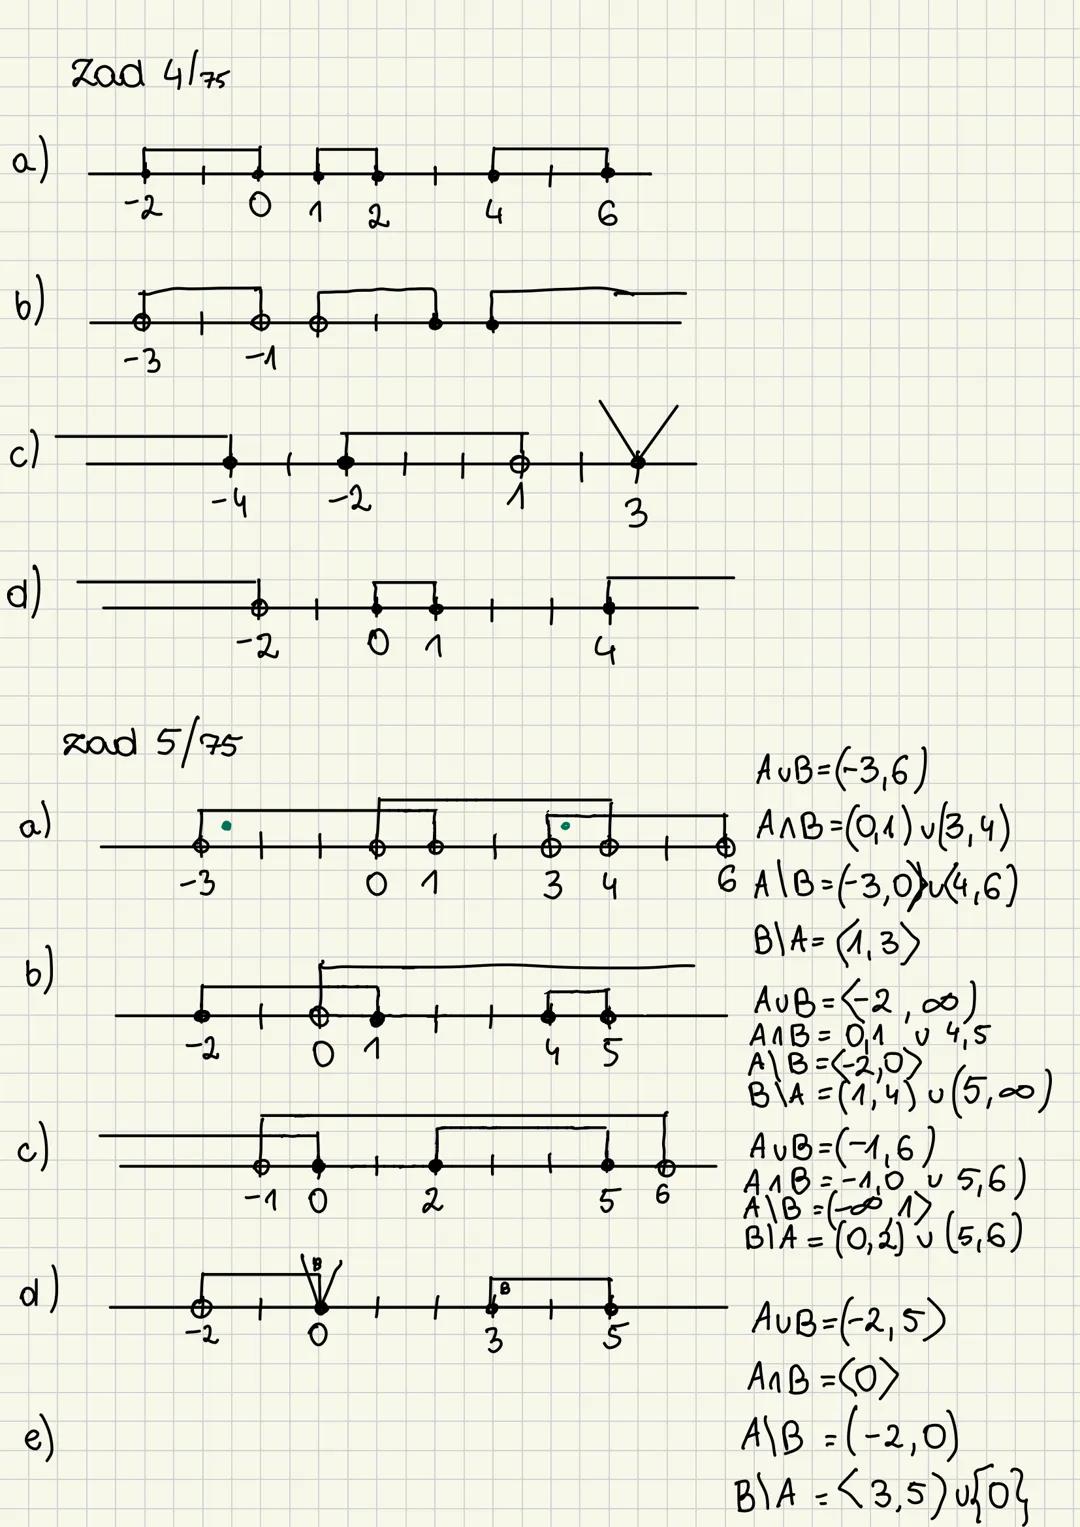 Zad 4/75
a)
-2 0 1 2 4 6
b)
-3 -1
c)
-4 -2 1 3
d)
-2 0 1 4
zad 5/75
a)
-3 0 1 3 4 6
A∪B=(-3,6)
A∩B=(0,1)∪(3,4)
A\B=(-3,0⟩∪⟨4,6)
B\A=⟨1,3⟩
b)
-2 0 1 4 5
A∪B=⟨-2,∞)
A∩B= 0,1 ∪ 4,5
A\B=⟨-2,0⟩
B\A=(1,4)∪(5,∞)
c)
-1 0 2 5 6
A∪B=(-1,6)
A∩B=-1,0 ∪ 5,6)
A\B=(-∞,1⟩
B\A=(0,2)∪(5,6)
d)
B
B
-2 0 3 5
A∪B=(-2,5⟩
A∩B=⟨0⟩
A\B=(-2,0)
B\A=⟨3,5)∪{0}
e)